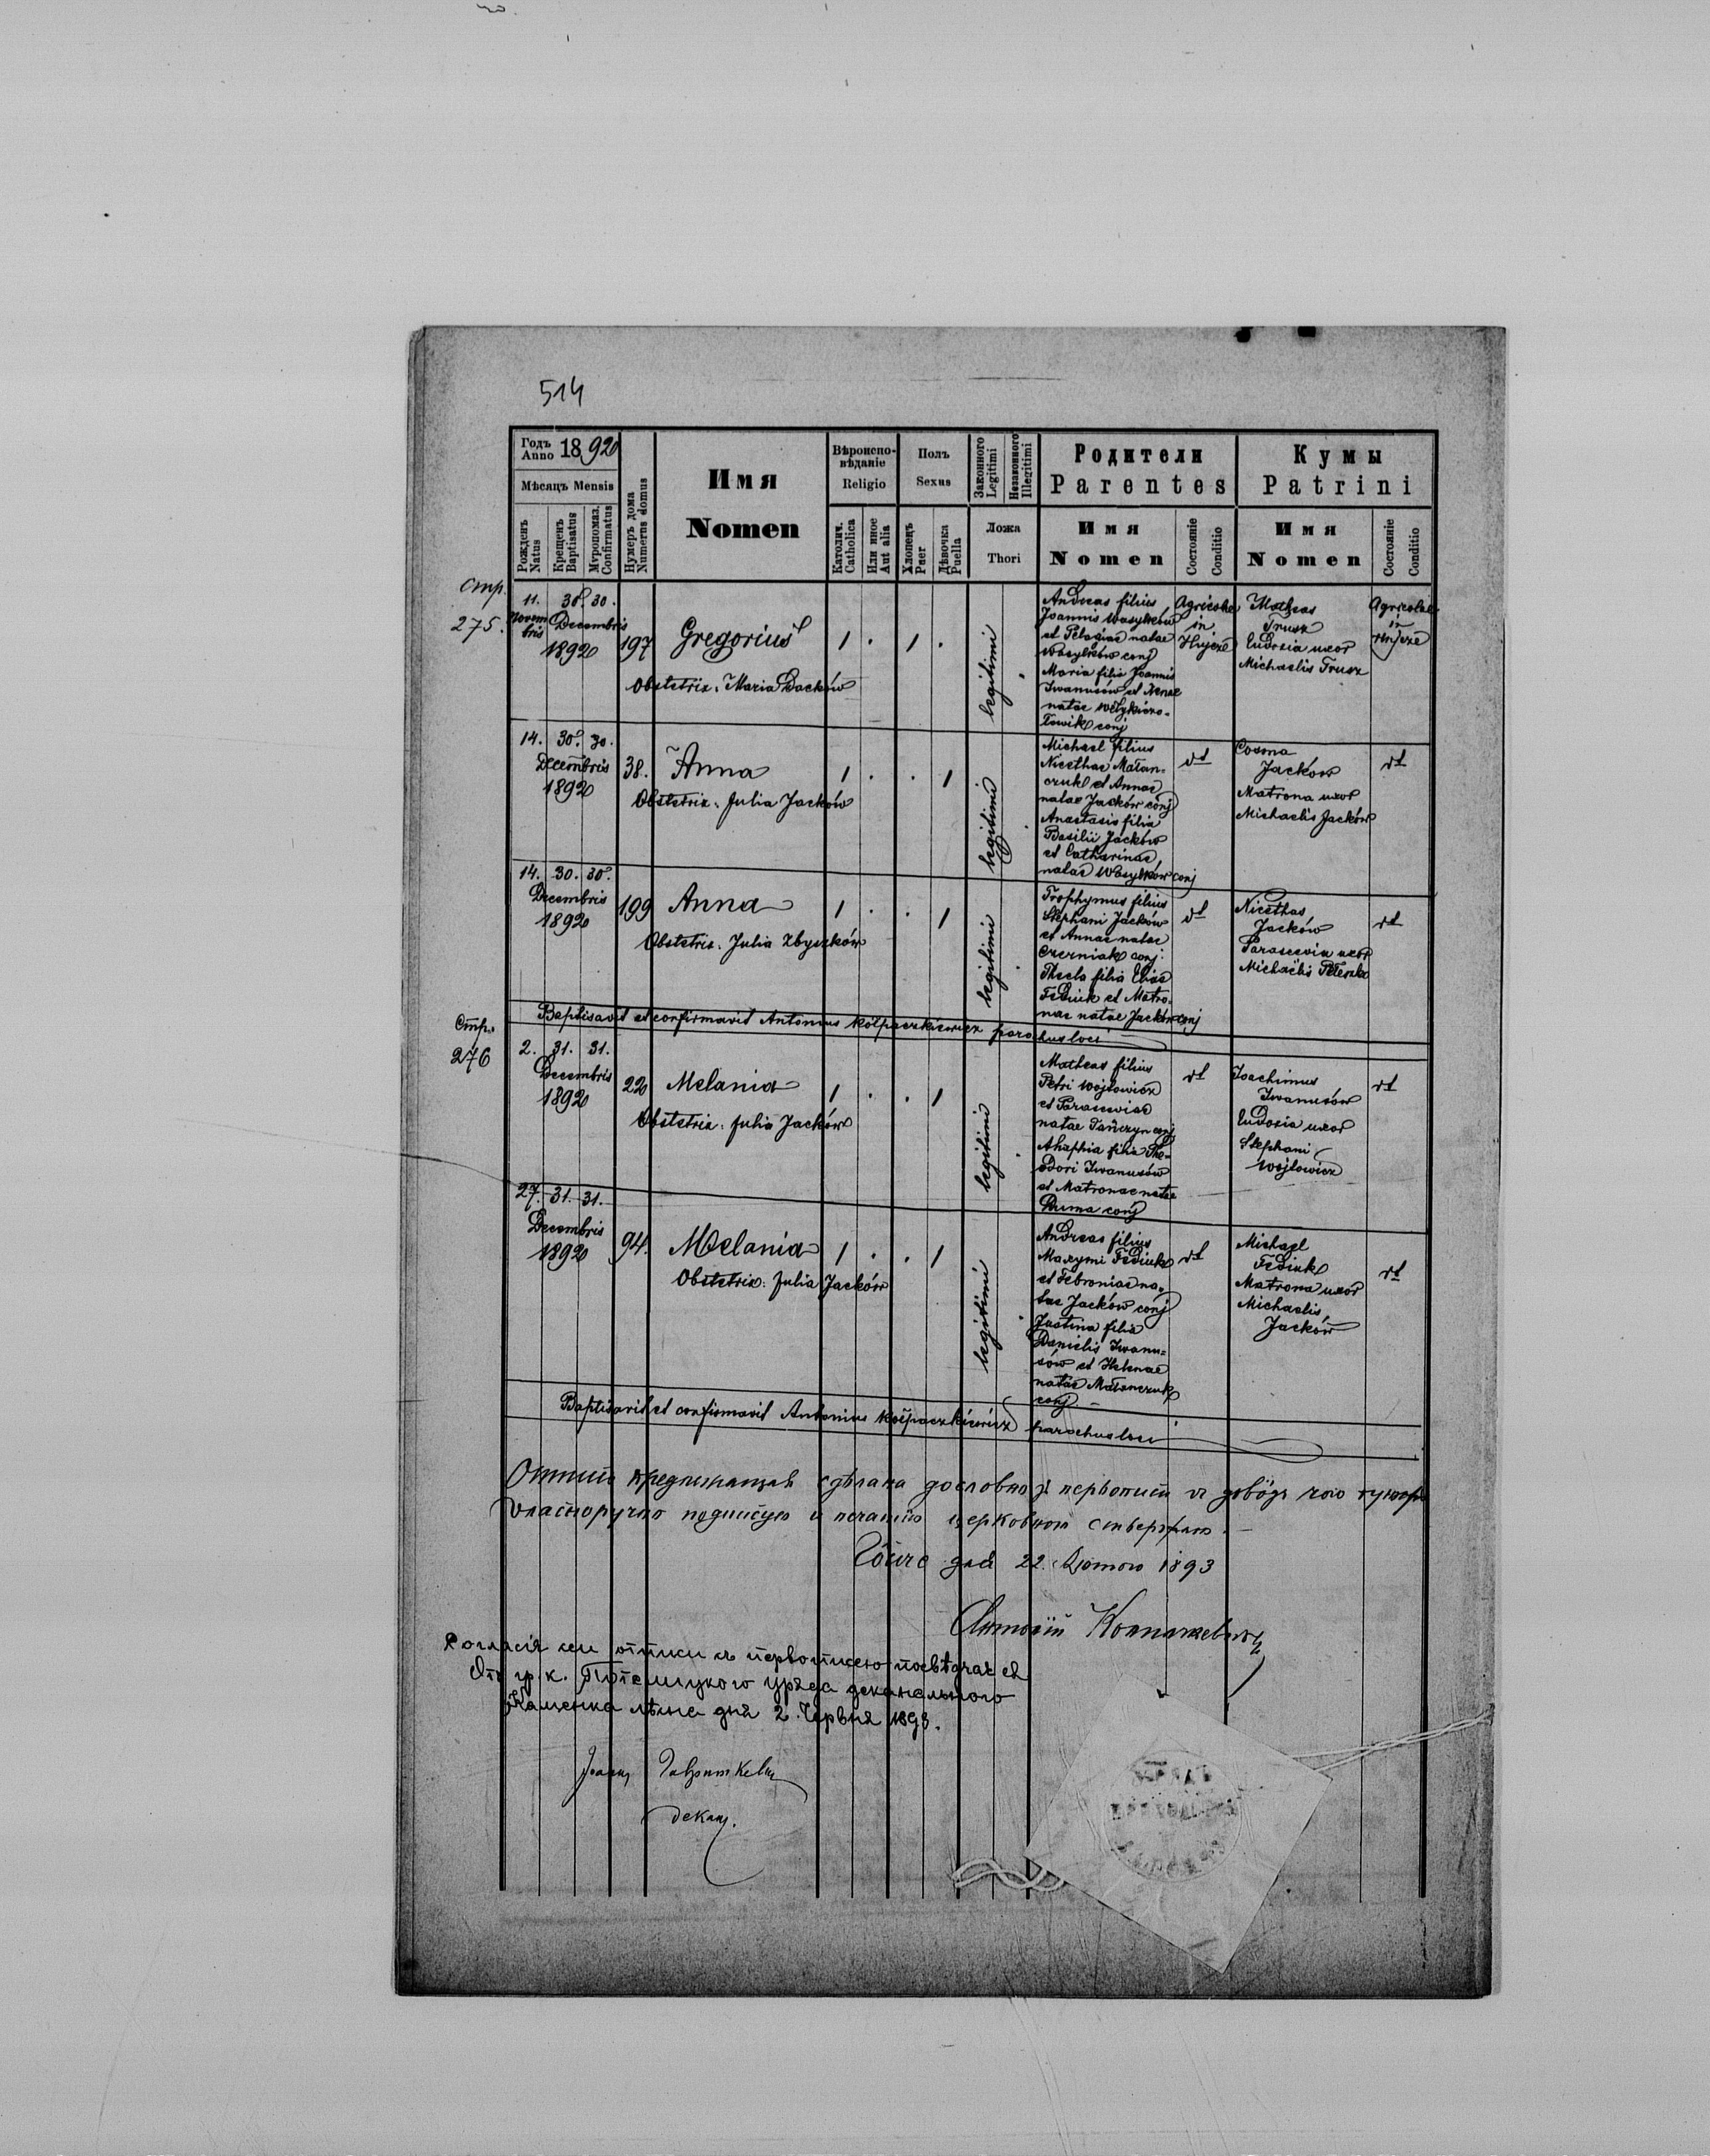 514
Годъ Anno 1892
Мѣсяцъ Mensis
Рожденъ Natus
Крещенъ Baptisatus
Мѵропомаз. Confirmatus
Нумеръ дома Numerus domus
Имя
Nomen
Вѣроиспо-
вѣданіе
Religio
Католич. Catholica
Или иное Aut alia
Полъ
Sexus
Хлопецъ Puer
Дѣвочка Puella
Законного Legitimi
Незаконного Illegitimi
Ложа
Thori
Родители
Parentes
Имя
Nomen
Состояніе Conditio
Кумы
Patrini
Имя
Nomen
Состояніе Conditio
стр.
275.
11. 30. 30.
Novem
bris
Decembris
1892
197
Gregorius
1 . 1 .
Obstetrix: Maria Dacków
legitimi
Andreas filius
Joannis Wasylków
et Pelagiae natae
Wasylków conj
Maria filia Joannis
Iwanusów et Xenae
natae
conj
Agricolae
in
Hujcze
Matheas
Trusz
Eudoxia uxor
Michaelis Trusz
Agricolae
in
Hujcze
14. 30. 30.
Decembris
1892
38.
Anna
1 . . 1
Obstetrix: Julia Jacków
legitimi
Michael filius
Nicethae Matan-
czuk et Annae
natae Jacków conj
Anastasia filia
Basilii Jacków
et Catharinae
natae Wasylków conj
dt
Cosma
Jacków
Matrona uxor
Michaelis Jacków
dt
14. 30. 30.
Decembris
1892
199
Anna
1 . . 1
Obstetrix: Julia Zbyszków
legitimi
Trophymus filius
Stephani Jacków
et Annae natae
Czerniak conj.
Thecla filia Eliae
Fediuk et Matro-
nae natae Jacków conj
dt
Nicethas
Jacków
Parascevia uxor
Michaelis
dt
Baptisavit et confirmavit Antonius Kołpaczkiewicz parochus loci
Стр.
276
2. 31. 31.
Decembris
1892
22
Melania
1 . . 1
Obstetrix: Julia Jacków
legitimi
Matheas filius
Petri Wojtowicz
et Parasceviae
natae conj
Ahaphia filia The-
odori Iwanusów
et Matronae natae
Duma conj
dt
Joachimus
Iwanusów
Eudoxia uxor
Stephani
Wojtowicz
dt
27. 31. 31.
Decembris
1892
94.
Melania
1 . . 1
Obstetrix: Julia Jacków
legitimi
Andreas filius
Maxymi Fediuk
et Febroniae na-
tae Jacków conj
Justina filia
Danielis Iwanu-
sów et Helenae
natae Matanczuk
conj
dt
Michael
Fediuk
Matrona uxor
Michaelis
Jacków
dt
Baptisavit et confirmavit Antonius Kołpaczkiewicz parochus loci
сдѣлана дословно
подписую и печатію церковною
дня 22. Лютого 1893
Антоній
отписи съ первописею
От гр. к. уряда деканального
дня 2. Червня 1893.
декан.